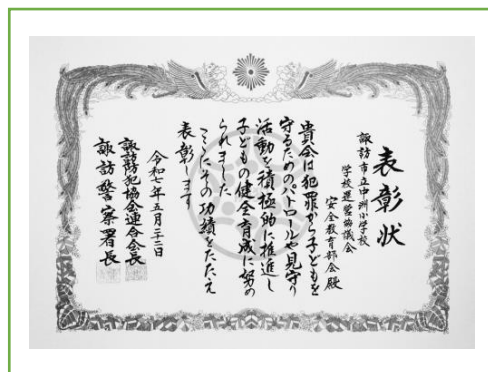 表彰状
諏訪市立中洲小学校
学校運営協議会
安全教育部会殿
貴会は犯罪から子どもを
守るためのパトロールや見守り
活動を積極的に推進し
子どもの健全育成に努め
られました
ここにその功績をたたえ
表彰します
令和七年五月二十二日
諏訪防犯協会連合会長
諏訪警察署長